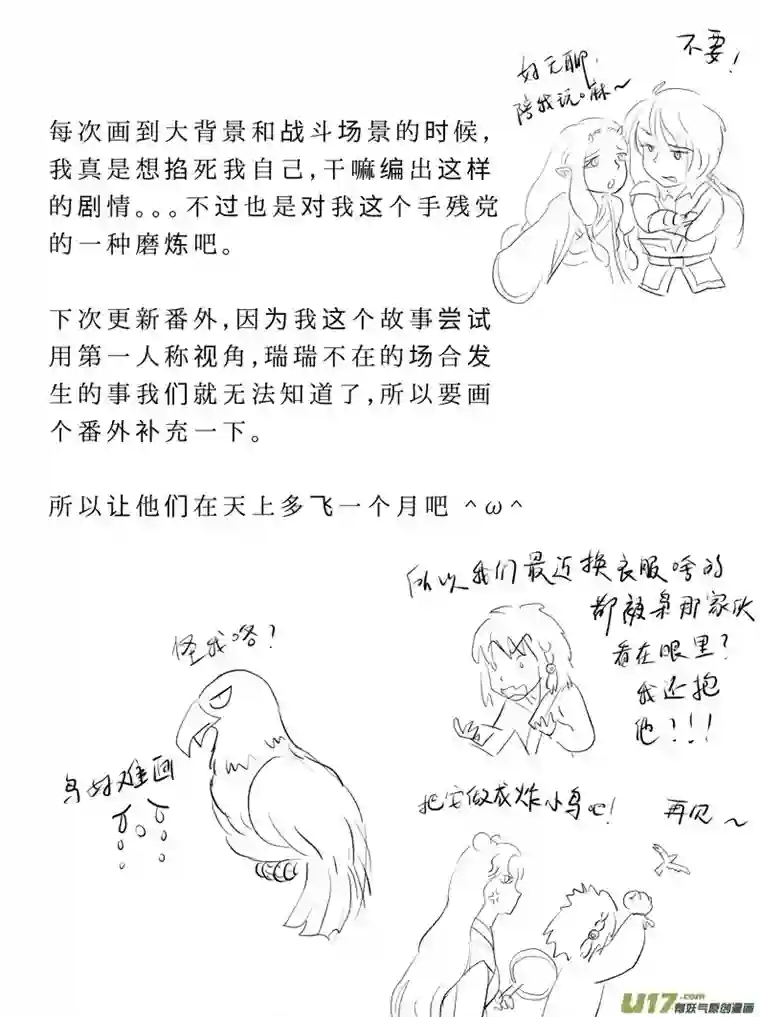 不要!
好无聊,
陪我玩。嘛~
每次画到大背景和战斗场景的时候,
我真是想掐死我自己,干嘛编出这样
的剧情。。。不过也是对我这个手残党
的一种磨炼吧。
下次更新番外,因为我这个故事尝试
用第一人称视角,瑞瑞不在的场合发
生的事我们就无法知道了,所以要画
个番外补充一下。
所以让他们在天上多飞一个月吧 ^ω^
所以我们最近换衣服啥的
都被枭那家伙
看在眼里?
我还抱
他?!!!
怪我咯?
鸟好难画
把它做成炸小鸟吧!
再见~
U17.com
有妖气原创漫画